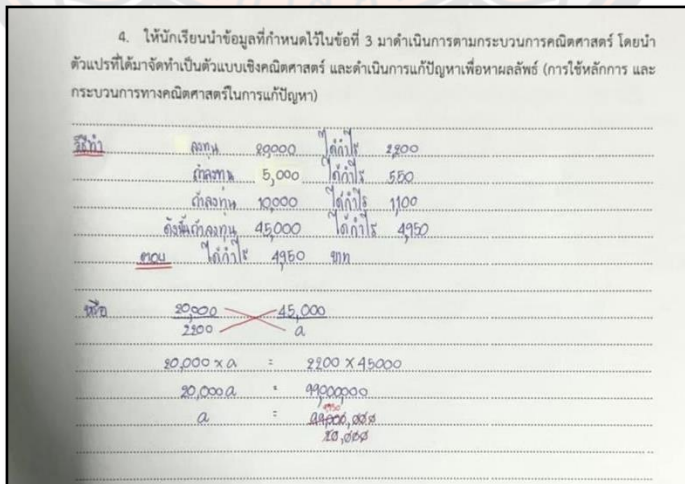 4. ให้นักเรียนนำข้อมูลที่กำหนดไว้ในข้อที่ 3 มาดำเนินการตามกระบวนการคณิตศาสตร์ โดยนำ
ตัวแปรที่ได้มาจัดทำเป็นตัวแบบเชิงคณิตศาสตร์ และดำเนินการแก้ปัญหาเพื่อหาผลลัพธ์ (การใช้หลักการ และ
กระบวนการทางคณิตศาสตร์ในการแก้ปัญหา)
วิธีทำ ลงทุน 20,000 ได้กำไร 2,200
ถ้าลงทุน 5,000 ได้กำไร 550
ถ้าลงทุน 10,000 ได้กำไร 1,100
ดังนั้นถ้าลงทุน 45,000 ได้กำไร 4,950
ตอบ ได้กำไร 4,950 บาท
หรือ 20,000 45,000
2200 a
20,000 x a = 2200 x 45000
20,000 a = 99,000,000
4950
a = 99,000,000
20,000